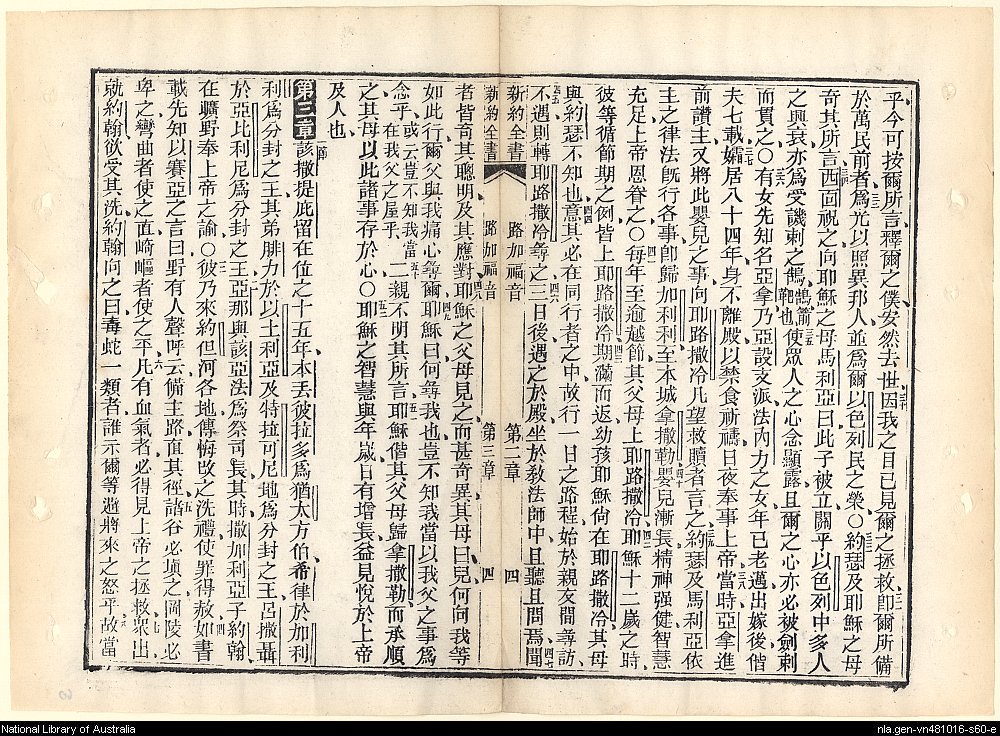 乎今可按爾所言釋爾之僕安然去世因我之目已見爾之拯救卽爾所備
於萬民前者爲光以照異邦人並爲爾以色列民之榮○約瑟及耶穌之母
奇其所言西面祝之向耶穌之母馬利亞曰此子被立關乎以色列中多人
之興衰亦爲受譏刺之鵠鵠箭靶也使眾人之心念顯露且爾之心亦必被劍刺
而貫之○有女先知名亞拿乃亞設支派法內力之女年已老邁出嫁後偕
夫七載孀居八十四年身不離殿以禁食祈禱日夜奉事上帝當時亞拿進
前讚主又將此嬰兒之事向耶路撒冷凡望救贖者言之約瑟及馬利亞依
主之律法旣行各事卽歸加利利至本城拿撒勒嬰兒漸長精神强健智慧
充足上帝恩眷之○每年至逾越節其父母上耶路撒冷耶穌十二歲之時
彼等循節期之例皆上耶路撒冷期滿而返幼孩耶穌尙在耶路撒冷其母
與約瑟不知也意其必在同行者之中故行一日之路程始於親友間尋訪
不遇則轉耶路撒冷尋之三日後遇之於殿坐於敎法師中且聽且問焉聞
新約全書 路加福音 第二章 四
新約全書 路加福音 第三章 四
者皆奇其聰明及其應對耶穌之父母見之而甚奇異其母曰兒何向我等
如此行爾父與我痛心尋爾耶穌曰何尋我也豈不知我當以我父之事爲
念乎或云豈不知我當在我父之屋乎二親不明其所言耶穌偕其父母歸拿撒勒而承順
之其母以此諸事存於心○耶穌之智慧與年歲日有增長益見悅於上帝
及人也
第三章一節該撒提庇留在位之十五年本丟彼拉多爲猶太方伯希律於加利
利爲分封之王其弟腓力於以土利亞及特拉可尼地爲分封之王呂撒聶
於亞比利尼爲分封之王亞那與該亞法爲祭司長其時撒加利亞子約翰
在曠野奉上帝之諭○彼乃來約但河各地傳悔改之洗禮使罪得赦如書
載先知以賽亞之言曰野有人聲呼云備主路直其徑諸谷必塡之岡陵必
卑之彎曲者使之直崎嶇者使之平凡有血氣者必得見上帝之拯救眾出
就約翰欲受其洗約翰向之曰毒蛇一類者誰示爾等避將來之怒乎故當
National Library of Australia
nla.gen-vn481016-s60-e